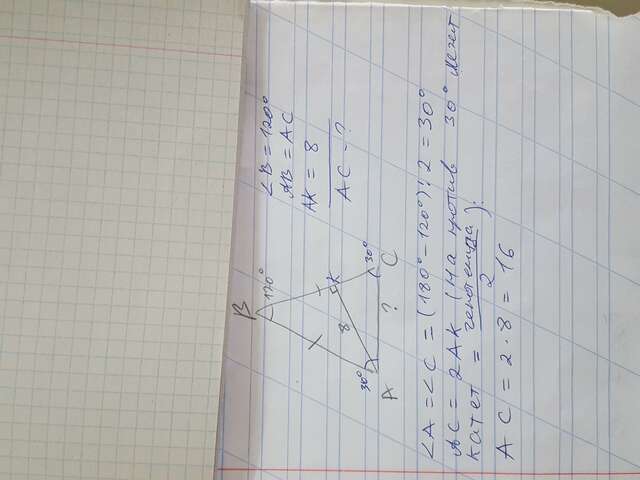 ∠B = 120°
AB = AC
AK = 8
AC - ?
B
120°
K
8
30°
30°
A
?
C
∠A = ∠C = (180° - 120°) : 2 = 30°
AC = 2AK (На против 30° лежит
катет = гепотенуза / 2 ).
AC = 2 · 8 = 16